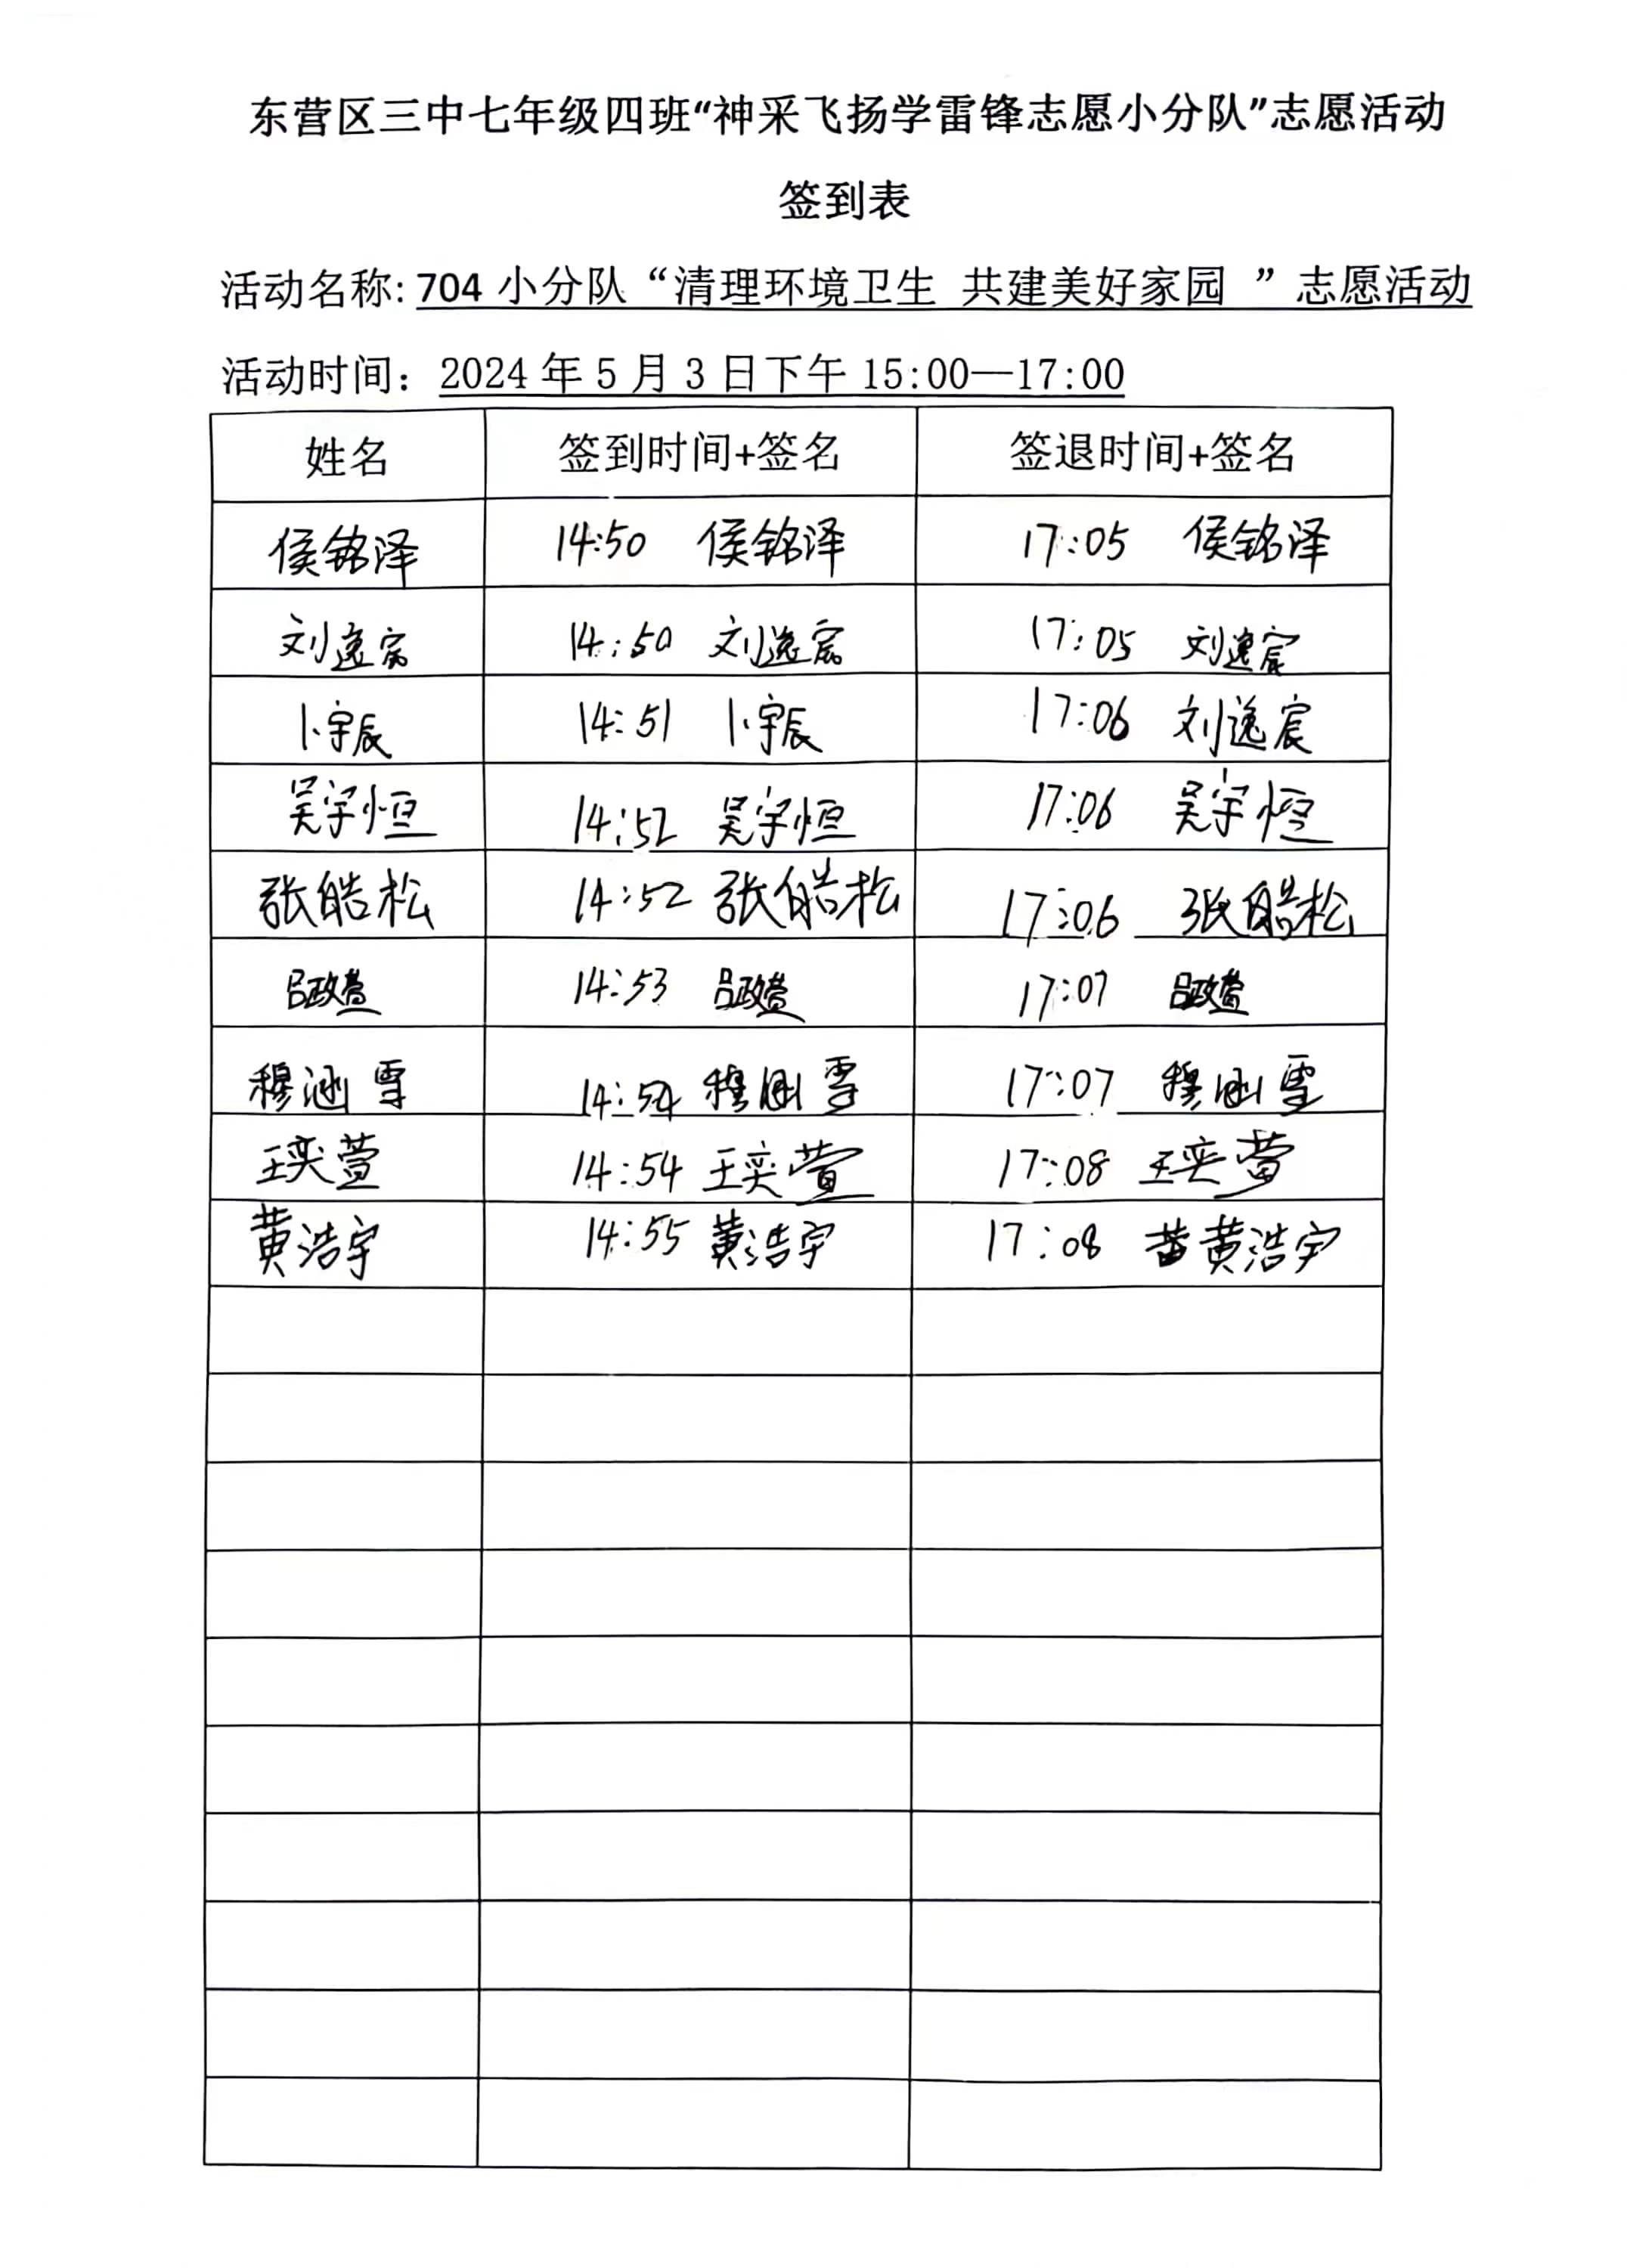 东营区三中七年级四班“神采飞扬学雷锋志愿小分队”志愿活动
签到表
活动名称: 704 小分队“清理环境卫生 共建美好家园 ”志愿活动
活动时间：2024 年 5 月 3 日下午 15:00—17:00
姓名 签到时间+签名 签退时间+签名
侯铭泽 14:50 侯铭泽 17:05 侯铭泽
刘逸宸 14:50 刘逸宸 17:05 刘逸宸
卜宇辰 14:51 卜宇辰 17:06 刘逸宸
吴宇恒 14:52 吴宇恒 17:06 吴宇恒
张皓松 14:52 张皓松 17:06 张皓松
吕政萱 14:53 吕政萱 17:07 吕政萱
穆涵雪 14:54 穆涵雪 17:07 穆涵雪
王奕萱 14:54 王奕萱 17:08 王奕萱
黄浩宇 14:55 黄浩宇 17:08 黄浩宇